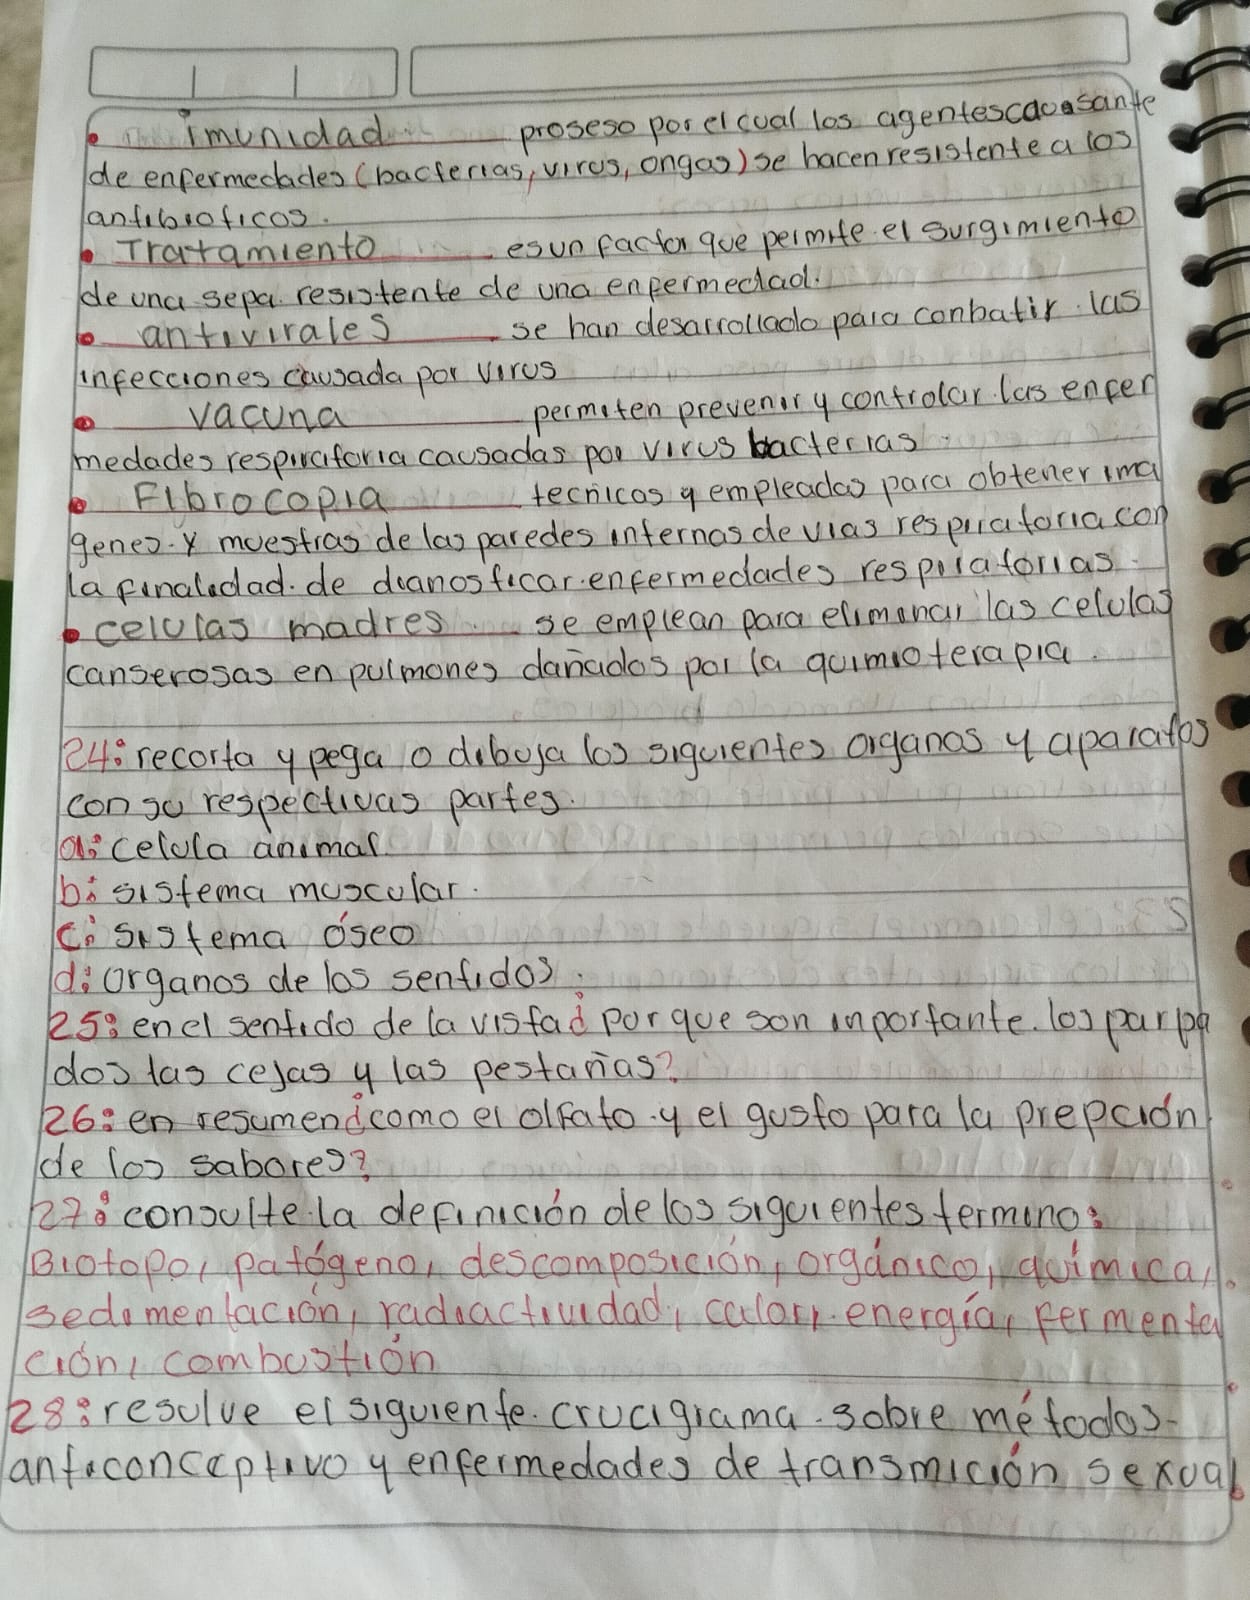 • imunidad proseso por el cual los agentes caosante
de enfermedades (bacterias, virus, ongas) se hacen resistente a los
antibioticos.
• Tratamiento es un factor que permite el surgimiento
de una sepa resistente de una enfermedad.
• antivirales se han desarrollado para conbatir las
infecciones causada por virus
• vacuna permiten prevenir y controlar las enfer
medades respiratoria causadas por virus bacterias
• Fibrocopia tecnicas y empleadas para obtener ima
genes. y muestras de las paredes internas de vias respiratoria con
la finalidad. de dianosticar. enfermedades respiratorias.
• celulas madres se emplean para eliminar las celulas
canserosas en pulmones dañados por la quimioterapia.
24: recorta y pega o dibuja los siguientes organos y aparatos
con su respectivas partes.
a: celula animal
b: sistema muscular.
c: sistema óseo
d: organos de los sentidos.
25: en el sentido de la vista ¿ por que son inportante. los parpa
dos las cejas y las pestañas?
26: en resumen ¿ como el olfato. y el gusto para la prepción
de los sabores?
27: consulte la definición de los siguientes termino:
Biotopo, patógeno, descomposición, orgánico, química,
sedimentación, radiactividad, calor, energía, fermenta
ción, combustión
28: resulve el siguiente. crucigrama. sobre métodos-
anticonceptivo y enfermedades de transmición sexual.